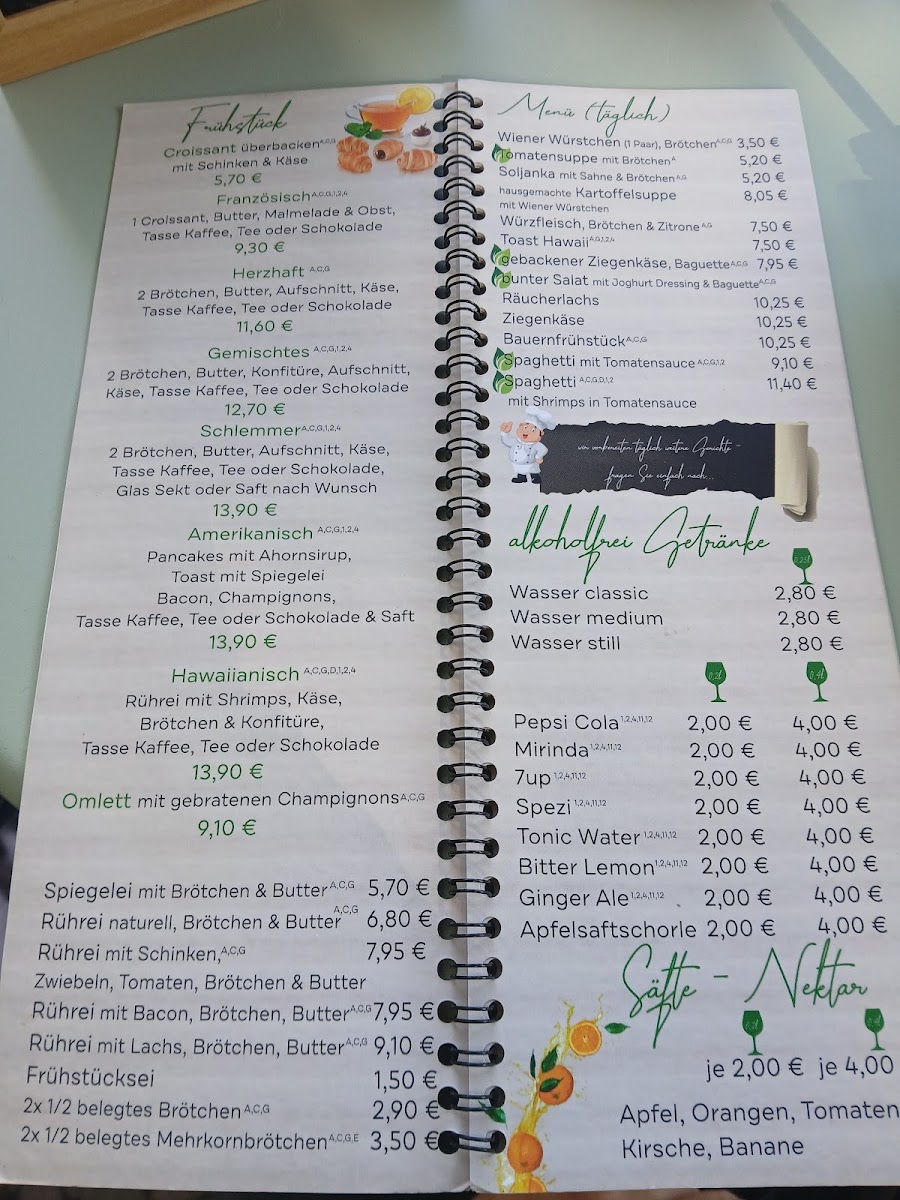 Frühstück
Croissant überbacken A,C,G
mit Schinken & Käse
5,70 €
Französisch A,C,G,1,2,4
1 Croissant, Butter, Malmelade & Obst,
Tasse Kaffee, Tee oder Schokolade
9,30 €
Herzhaft A,C,G
2 Brötchen, Butter, Aufschnitt, Käse,
Tasse Kaffee, Tee oder Schokolade
11,60 €
Gemischtes A,C,G,1,2,4
2 Brötchen, Butter, Konfitüre, Aufschnitt,
Käse, Tasse Kaffee, Tee oder Schokolade
12,70 €
Schlemmer A,C,G,1,2,4
2 Brötchen, Butter, Aufschnitt, Käse,
Tasse Kaffee, Tee oder Schokolade,
Glas Sekt oder Saft nach Wunsch
13,90 €
Amerikanisch A,C,G,1,2,4
Pancakes mit Ahornsirup,
Toast mit Spiegelei
Bacon, Champignons,
Tasse Kaffee, Tee oder Schokolade & Saft
13,90 €
Hawaiianisch A,C,G,D,1,2,4
Rührei mit Shrimps, Käse,
Brötchen & Konfitüre,
Tasse Kaffee, Tee oder Schokolade
13,90 €
Omlett mit gebratenen Champignons A,C,G
9,10 €
Spiegelei mit Brötchen & Butter A,C,G 5,70 €
Rührei naturell, Brötchen & Butter A,C,G 6,80 €
Rührei mit Schinken, A,C,G 7,95 €
Zwiebeln, Tomaten, Brötchen & Butter
Rührei mit Bacon, Brötchen, Butter A,C,G 7,95 €
Rührei mit Lachs, Brötchen, Butter A,C,G 9,10 €
Frühstücksei 1,50 €
2x 1/2 belegtes Brötchen A,C,G 2,90 €
2x 1/2 belegtes Mehrkornbrötchen A,C,G,E 3,50 €
Menü (täglich)
Wiener Würstchen (1 Paar), Brötchen A,C,G 3,50 €
Tomatensuppe mit Brötchen A 5,20 €
Soljanka mit Sahne & Brötchen A,G 5,20 €
hausgemachte Kartoffelsuppe 8,05 €
mit Wiener Würstchen
Würzfleisch, Brötchen & Zitrone A,G 7,50 €
Toast Hawaii A,G,1,2,4 7,50 €
gebackener Ziegenkäse, Baguette A,C,G 7,95 €
bunter Salat mit Joghurt Dressing & Baguette A,C,G
Räucherlachs 10,25 €
Ziegenkäse 10,25 €
Bauernfrühstück A,C,G 10,25 €
Spaghetti mit Tomatensauce A,C,G,1,2 9,10 €
Spaghetti A,C,G,D,1,2 11,40 €
mit Shrimps in Tomatensauce
wir vorbereiten täglich weitere Gerichte -
fragen Sie einfach nach...
alkoholfrei Getränke
0,25l
Wasser classic 2,80 €
Wasser medium 2,80 €
Wasser still 2,80 €
0,2l 0,4l
Pepsi Cola 1,2,4,11,12 2,00 € 4,00 €
Mirinda 1,2,4,11,12 2,00 € 4,00 €
7up 1,2,4,11,12 2,00 € 4,00 €
Spezi 1,2,4,11,12 2,00 € 4,00 €
Tonic Water 1,2,4,11,12 2,00 € 4,00 €
Bitter Lemon 1,2,4,11,12 2,00 € 4,00 €
Ginger Ale 1,2,4,11,12 2,00 € 4,00 €
Apfelsaftschorle 2,00 € 4,00 €
Säfte - Nektar
0,2l 0,4l
je 2,00 € je 4,00
Apfel, Orangen, Tomaten
Kirsche, Banane